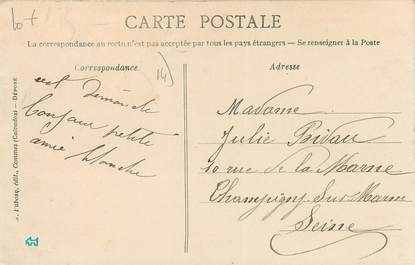 Lot
CARTE POSTALE
La correspondance au recto n'est pas acceptée par tous les pays étrangers — Se renseigner à la Poste
Correspondance
14)
Adresse
est dimanche
bonjour petite
amie blanche
Madame
Julie Bidau
10 rue de la Marne
Champigny Sur Marne
Seine
édit., Commes (Calvados) — DÉPOSÉ